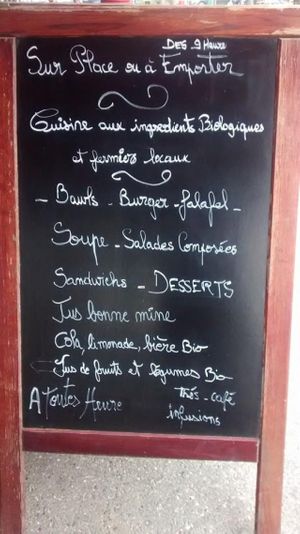 DES 9 Heure
Sur Place ou à Emporter
Cuisine aux ingredients Biologiques
et fermiers locaux
- Bawls - Burger - falafel -
Soupe - Salades Composées
Sandwichs - DESSERTS
Jus bonne mine
Cola, limonade, bière Bio
Jus de fruits et légumes Bio
A Toutes Heure
thés - café
infusions